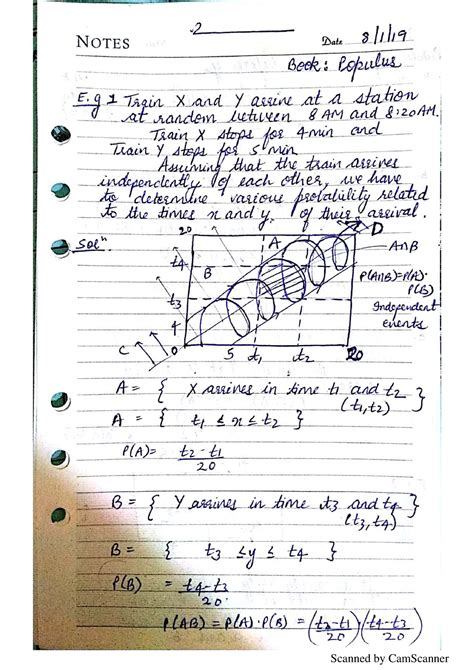 2
NOTES
Date 8/1/19
Book: Populus
E.g 1 Train X and Y arrive at a station
at random between 8 AM and 8:20 AM.
Train X stops for 4 min and
Train Y stops for 5 min
Assuming that the train arrives
independently of each other, we have
to determine various probability related
to the times x and y, of their arrival.
Solⁿ
20
A
D
A∩B
t4
B
P(A∩B)=P(A).
P(B)
t3
Independent
events
4
C
0
5
t1
t2
20
A = { X arrives in time t1 and t2 }
(t1,t2)
A = { t1 ≤ x ≤ t2 }
P(A)= t2-t1
20
B = { Y arrives in time t3 and t4 }
(t3,t4)
B = { t3 ≤ y ≤ t4 }
P(B) = t4-t3
20.
P(AB) = P(A).P(B) = (t2-t1) (t4-t3)
20 20
Scanned by CamScanner